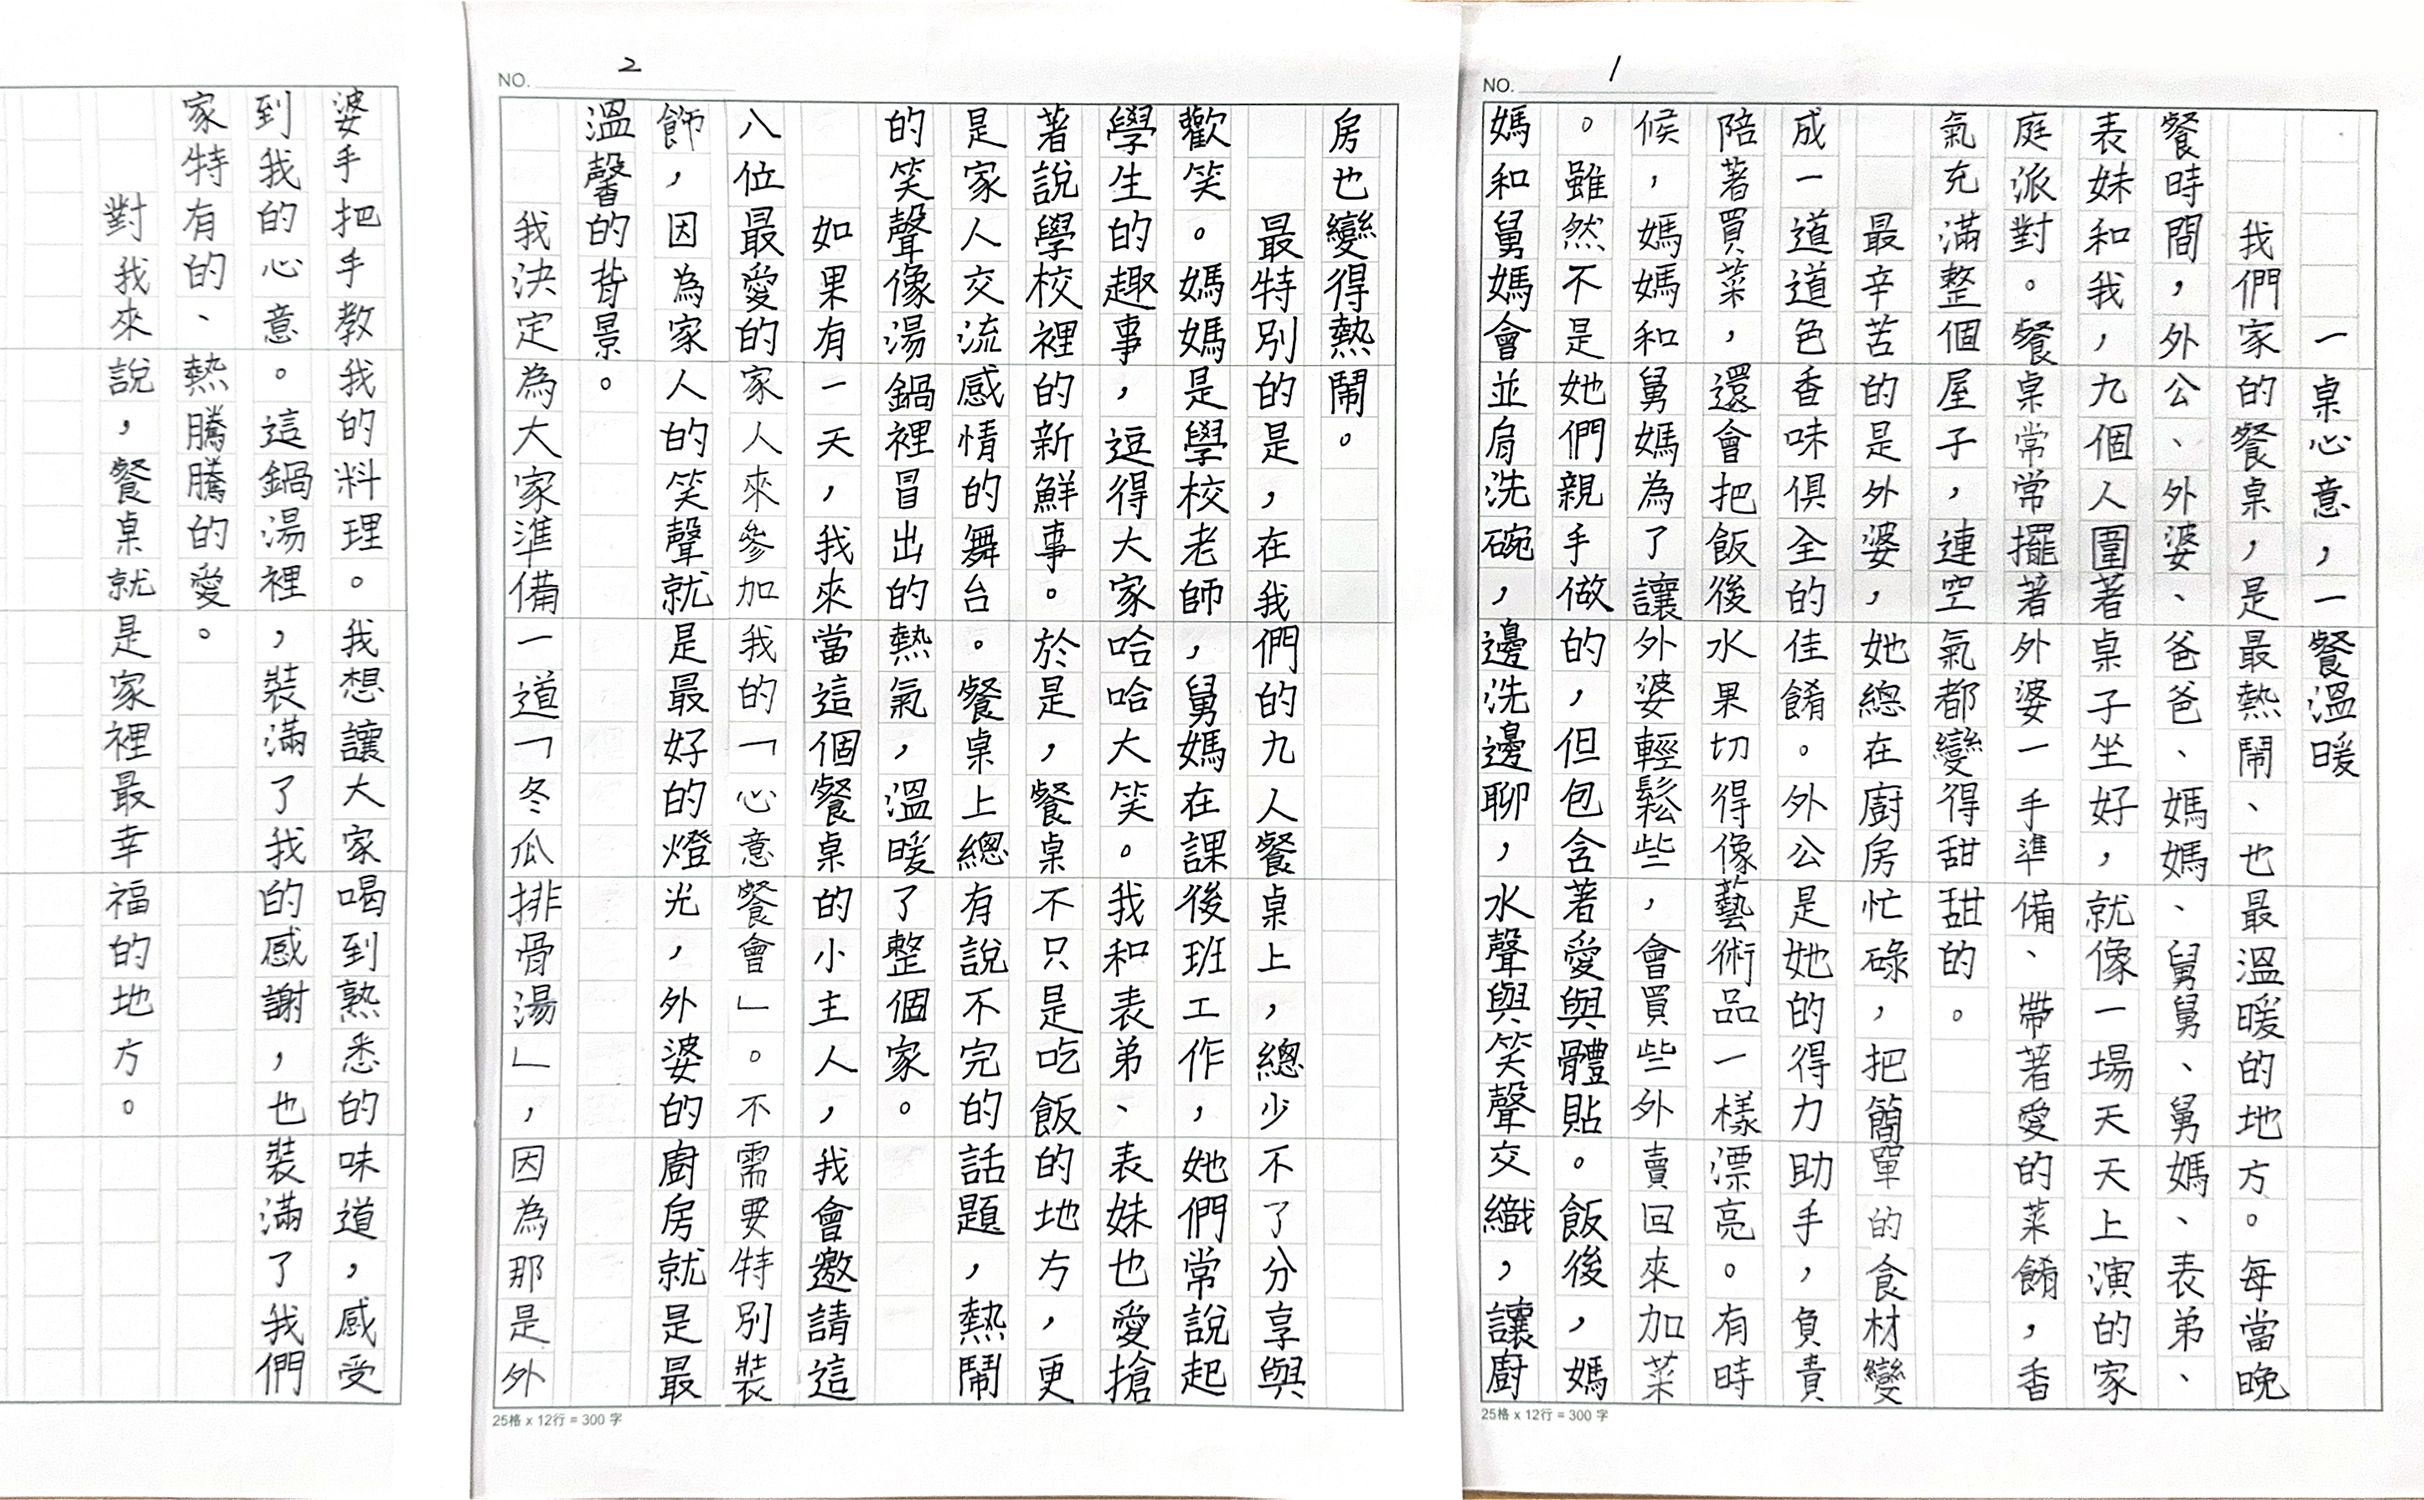 NO. 1
一桌心意，一餐溫暖
我們家的餐桌，是最熱鬧、也最溫暖的地方。每當晚
餐時間，外公、外婆、爸爸、媽媽、舅舅、舅媽、表弟、
表妹和我，九個人圍著桌子坐好，就像一場天天上演的家
庭派對。餐桌常常擺著外婆一手準備、帶著愛的菜餚，香
氣充滿整個屋子，連空氣都變得甜甜的。
最辛苦的是外婆，她總在廚房忙碌，把簡單的食材變
成一道道色香味俱全的佳餚。外公是她的得力助手，負責
陪著買菜，還會把飯後水果切得像藝術品一樣漂亮。有時
候，媽媽和舅媽為了讓外婆輕鬆些，會買些外賣回來加菜
。雖然不是她們親手做的，但包含著愛與體貼。飯後，媽
媽和舅媽會並肩洗碗，邊洗邊聊，水聲與笑聲交織，讓廚
25格 x 12行 = 300 字
NO. 2
房也變得熱鬧。
最特別的是，在我們的九人餐桌上，總少不了分享與
歡笑。媽媽是學校老師，舅媽在課後班工作，她們常說起
學生的趣事，逗得大家哈哈大笑。我和表弟、表妹也愛搶
著說學校裡的新鮮事。於是，餐桌不只是吃飯的地方，更
是家人交流感情的舞台。餐桌上總有說不完的話題，熱鬧
的笑聲像湯鍋裡冒出的熱氣，溫暖了整個家。
如果有一天，我來當這個餐桌的小主人，我會邀請這
八位最愛的家人來參加我的「心意餐會」。不需要特別裝
飾，因為家人的笑聲就是最好的燈光，外婆的廚房就是最
溫馨的背景。
我決定為大家準備一道「冬瓜排骨湯」，因為那是外
25格 x 12行 = 300 字
婆手把手教我的料理。我想讓大家喝到熟悉的味道，感受
到我的心意。這鍋湯裡，裝滿了我的感謝，也裝滿了我們
家特有的、熱騰騰的愛。
對我來說，餐桌就是家裡最幸福的地方。